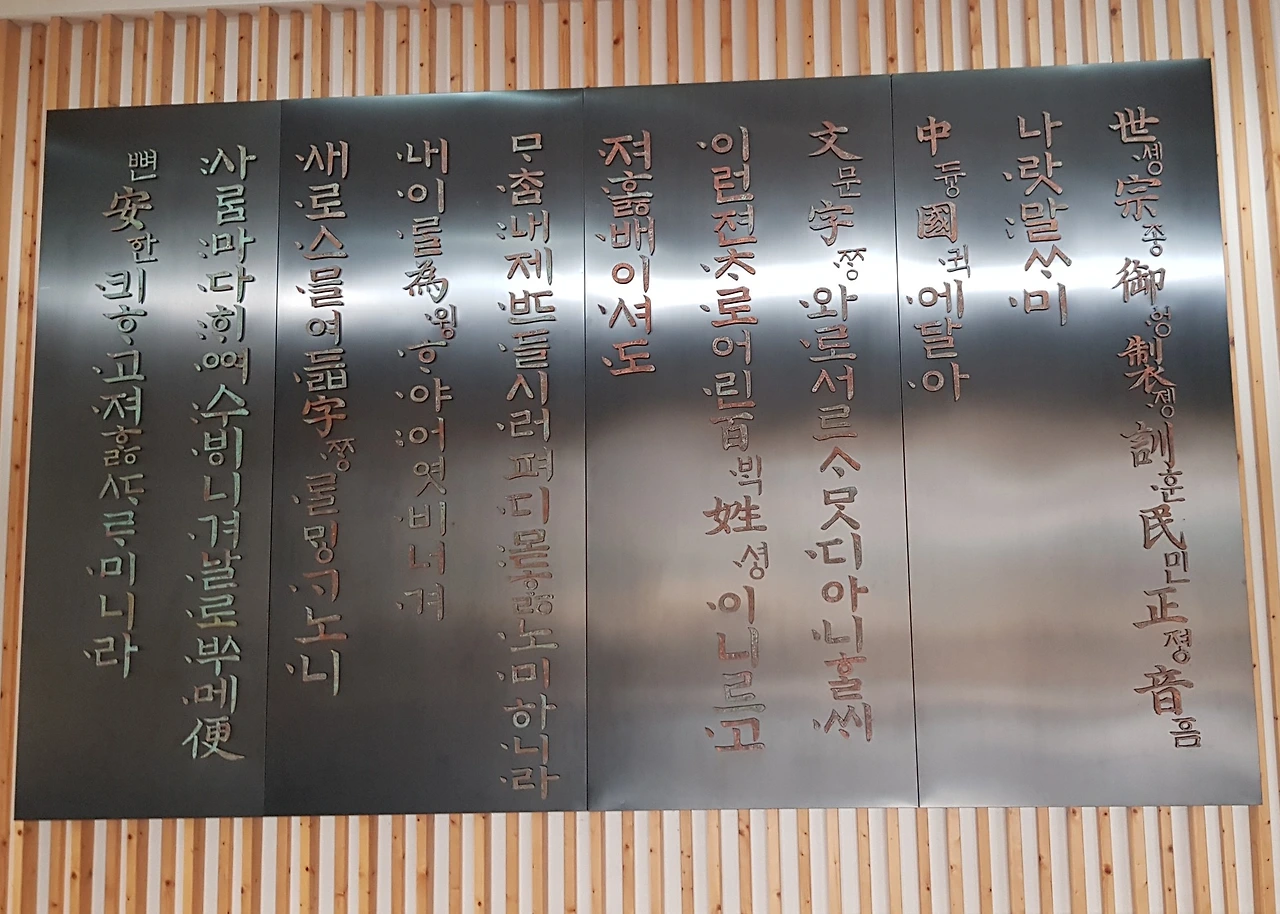 世솅宗종御엉製졩訓훈民민正졍音ᅙᅳᆷ
나랏말ᄊᆞ미
中듕國귁에달아
文문字ᄍᆞᆼ와로서르ᄉᆞᄆᆞᆺ디아니ᄒᆞᆯᄊᆡ
이런젼ᄎᆞ로어린百ᄇᆡᆨ姓셩이니르고
져ᄒᆞᇙ배이셔도
ᄆᆞᄎᆞᆷ내제ᄠᅳ들시러펴디몯ᄒᆞᇙ노미하니라
내이ᄅᆞᆯ為윙ᄒᆞ야어엿비너겨
새로스믈여듧字ᄍᆞᆼᄅᆞᆯᄆᆡᇰᄀᆞ노니
사ᄅᆞᆷ마다ᄒᆡᅇᅧ수ᄫᅵ니겨날로ᄡᅮ메便
뼌安한킈ᄒᆞ고져ᄒᆞᇙᄯᆞᄅᆞ미니라